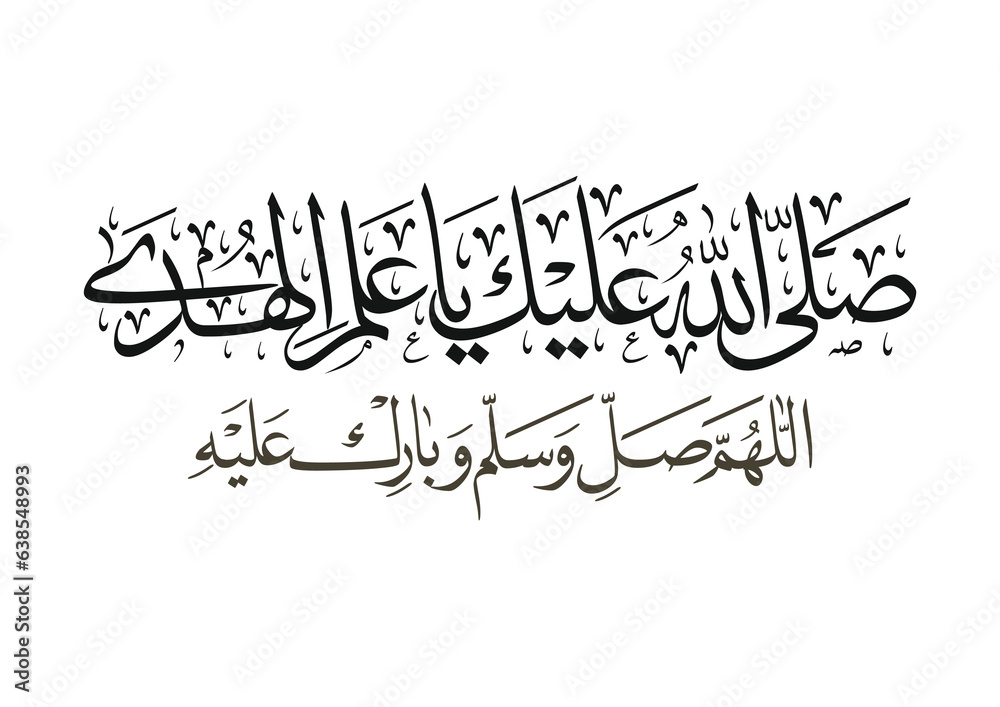 صَلَّى اللّٰهُ عَلَيْكَ يَا عَلَمَ الْهُدَى
اللّٰهُمَّ صَلِّ وَسَلِّمْ وَبَارِكْ عَلَيْهِ
Adobe Stock | #638548993